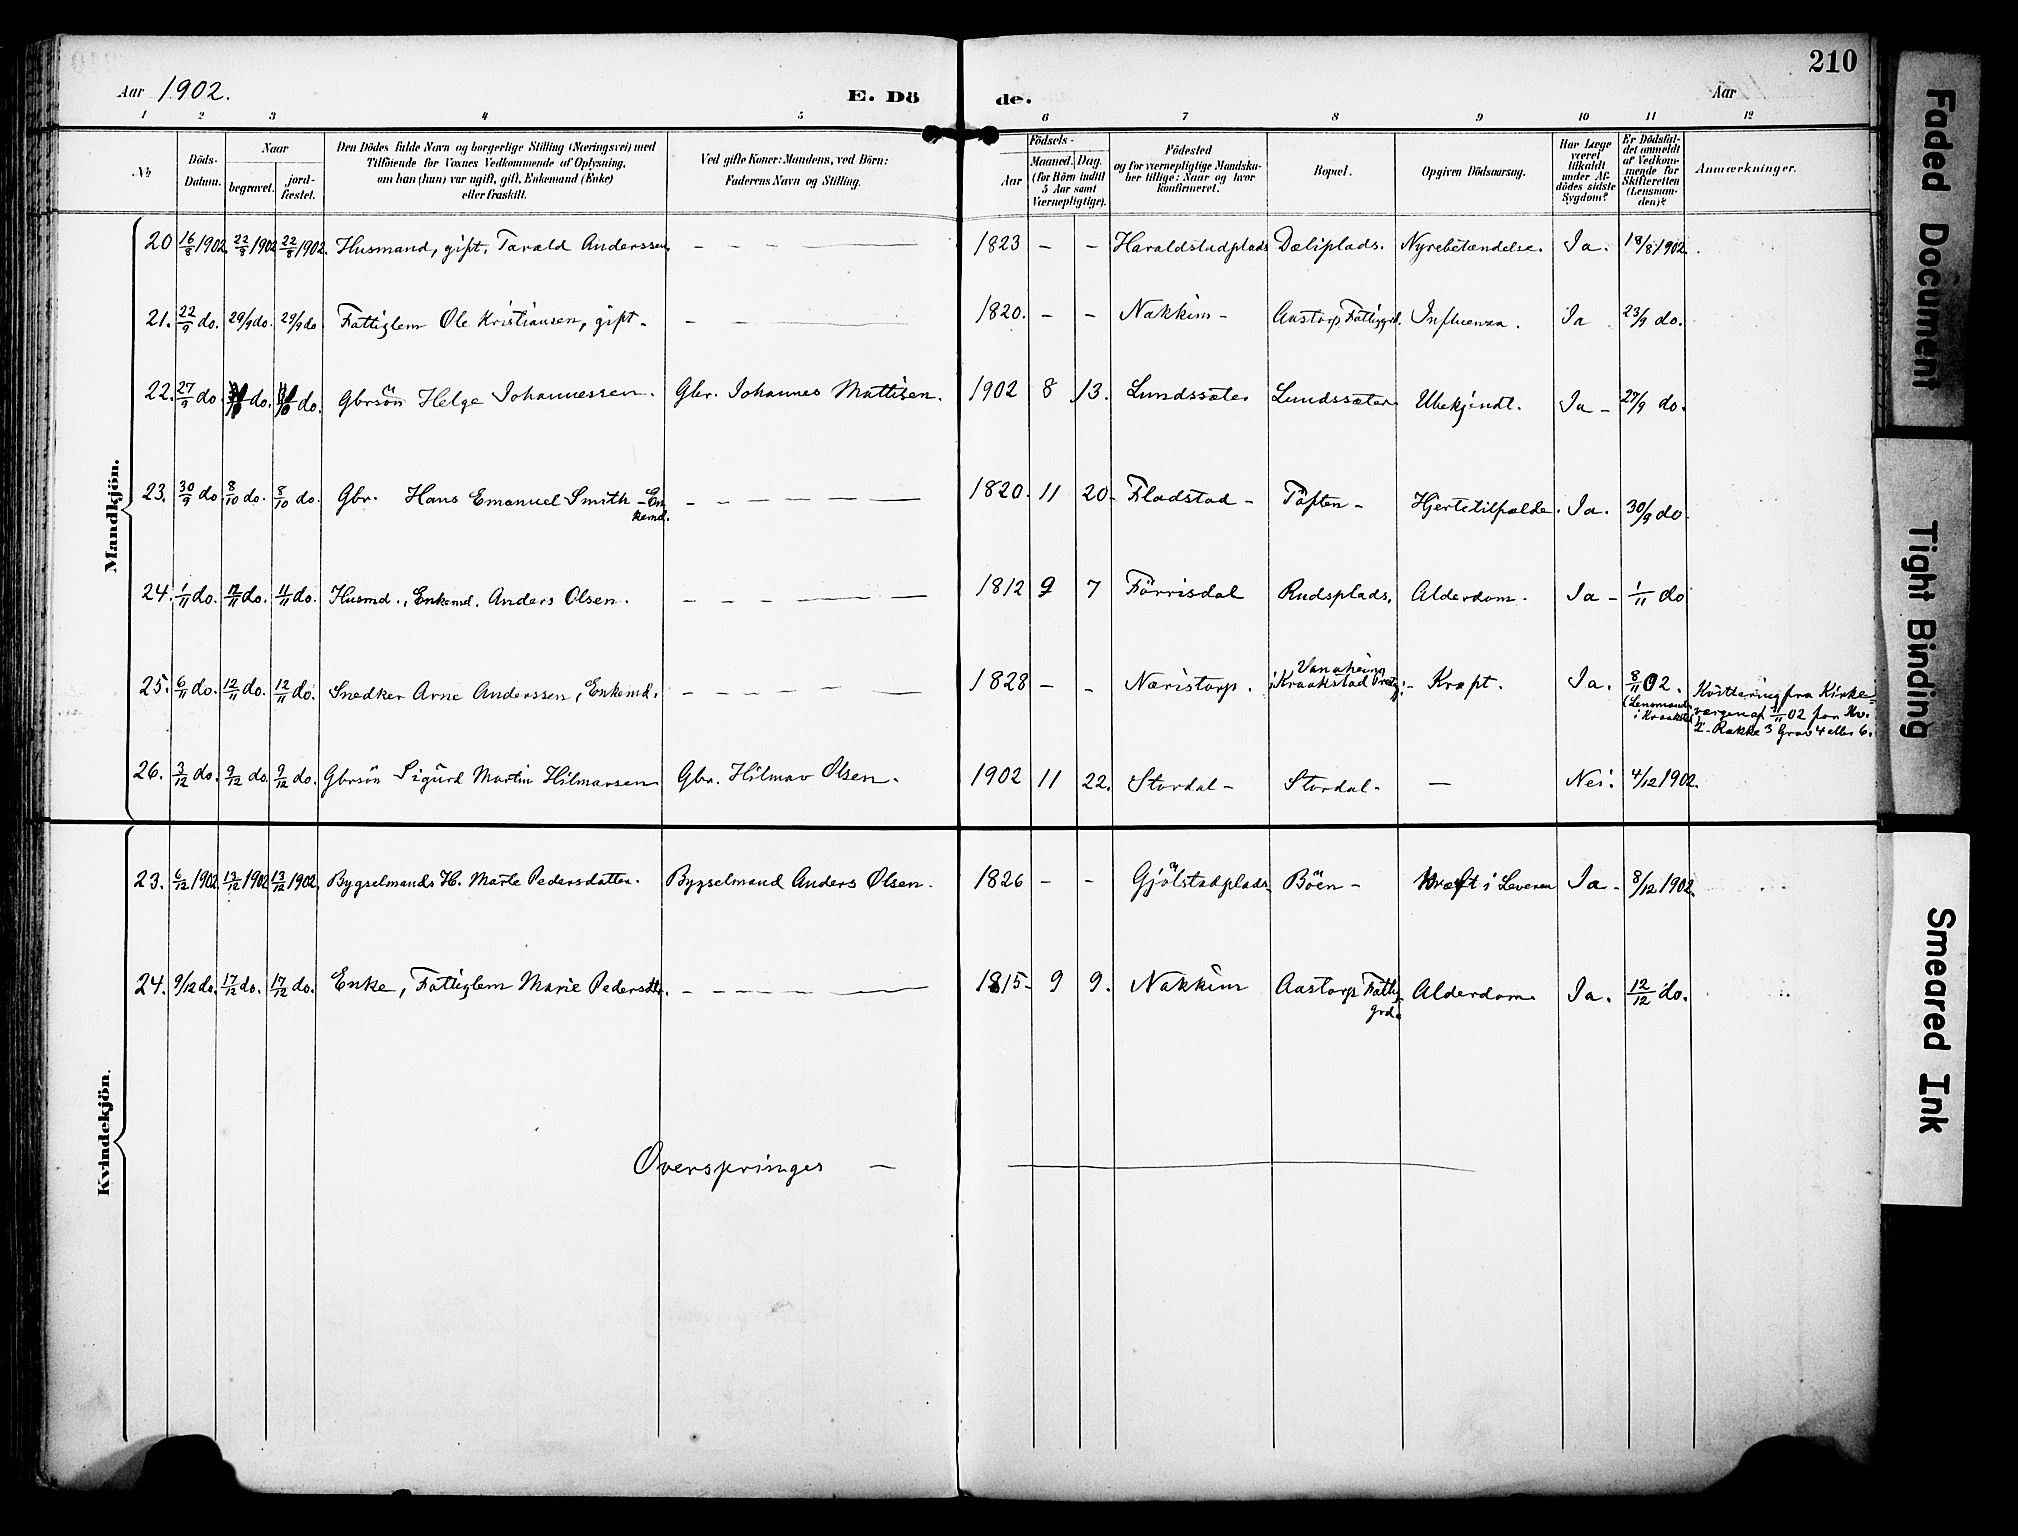 210
Aar 1902.
E. Dö de.
Aar
1 2 3 4 5 6 7 8 9 10 11 12
No
Döds-Datum.
Naar
begravet.
jord-fæstet.
Den Dödes fulde Navn og borgerlige Stilling (Næringsvei) med
Tilföiende for Voxnes Vedkommende af Oplysning,
om han (hun) var ugift, gift, Enkemand (Enke)
eller fraskilt.
Ved gifte Koner: Mandens, ved Börn:
Faderens Navn og Stilling.
Födsels-
Aar
Maaned. Dag.
(for Börn indtil
5 Aar samt
Værnepligtige).
Födested
og for værnepligtige Mandska-
ber tillige: Naar og hvor
konfirmeret.
Bopæl.
Opgiven Dödsaarsag.
Har Læge
været
tilkaldt
under Af-
dödes sidste
Sygdom?
Er Dödsfal-
det anmeldt
af Vedkom-
mende for
Skifteretten
(Lensman-
den)?
Anmærkninger.
Mandkjön.
20 16/8 1902. 22/8 1902 22/8 1902. Husmand, gift, Tarald Anderssen, - - - 1823 - - Haraldstadplads Dæliplads. Nyrebetændelse. Ja. 18/8 1902.
21. 22/9 do. 29/9 do. 29/9 do Fattiglem Ole Kristiansen, gift - - - 1820. - - Nakkim - Aastorp Fattiggrd. Influenza. Ja 23/9 do.
22. 27/9 do. do. do. Gbrsön Helge Johannessen. Gbr. Johannes Mattisen. 1902 8 13. Lundssæter Lundssæter Ubekjendt. Ja - 27/9 do.
23. 30/9 do 8/10 do. 8/10 do. Gbr. Hans Emanuel Smith - En-
kemd. - - - 1820. 11 20. Fladstad - Töften - Hjertetilfælde. Ja. 30/9 do.
24. 1/11 do. 11/11 do. Husmd., Enkemd. Anders Olsen. - - - 1812 9 7 Förrisdal Rudsplads, Alderdom. Ja - 1/11 do
25. 6/11 do. 12/11 do. 12/11 do. Snedker Arne Anderssen, Enkemd. - - - 1828 - - Næristorp. Vanaheim
i Kraakstad Kræft. Ja. 8/11 02.
(Lensmand
i Kraakstad Kvittering fra Kirke-
vergen af 11/11 02 for Kv.
2 - Række 3 Grav 4 eller 6.
26. 3/12 do. 9/12 do. 9/12 do. Gbrsön Sigurd Martin Hilmarsen Gbr. Hilmar Olsen. 1902 11 22. Stordal - Stordal. - Nei. 4/12 1902.
Kvindekjön.
23. 6/12 1902 13/12 1902 13/12 1902. Bygselmands H. Marte Pedersdatter. Bygselmand Anders Olsen. 1826 - - Gjölstadplads Böen - Kræft i Leveren Ja - 8/12 1902.
24. 9/12 do. 17/12 do. 17/12 do. Enke, Fattiglem Marie Pedersdtr. - - - 1815 - 9 9. Nakkim Aastorp Fattig-
grd. Alderdom. Ja. 12/12 do.
Overspringes -
Faded Document
Tight Binding
Smeared Ink